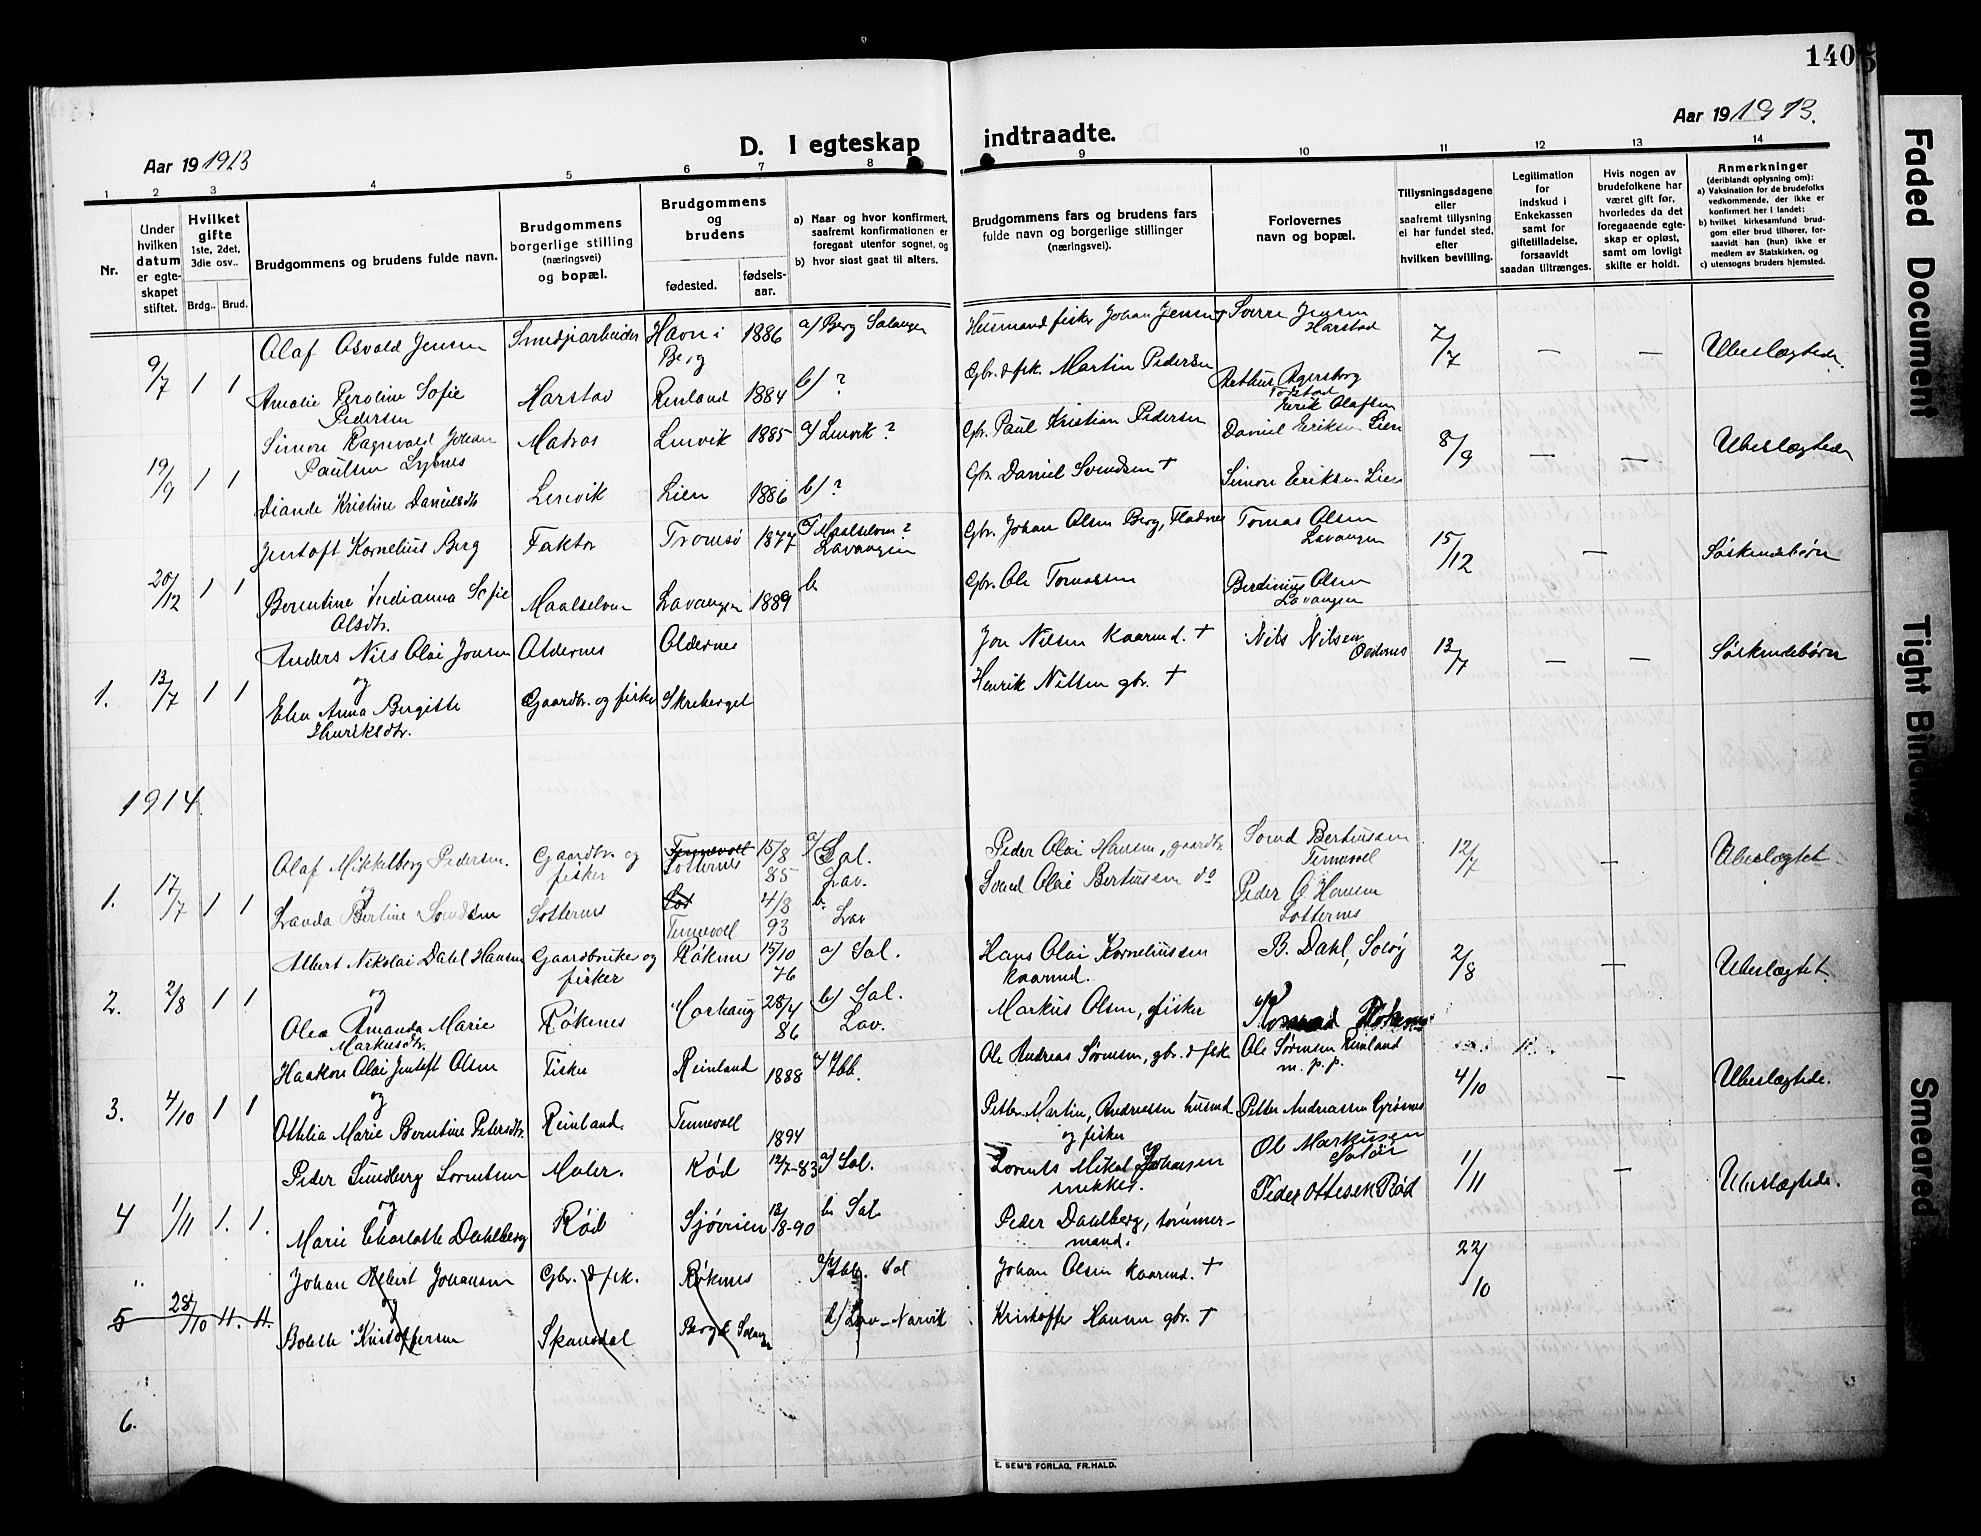 140
Aar 19 1913
D. I egteskap indtraadte.
Aar 19 1913.
1 2 3 4 5 6 7 8 9 10 11 12 13 14
Nr.
Under hvilken datum er egteskapet stiftet.
Hvilket gifte
1ste, 2det, 3die osv..
Brdg.. Brud.
Brudgommens og brudens fulde navn.
Brudgommens borgerlige stilling (næringsvei) og bopæl.
Brudgommens og brudens
fødested.
fødsels-aar.
a) Naar og hvor konfirmert, saafremt konfirmationen er foregaat utenfor sognet, og
b) hvor sisst gaat til alters.
Brudgommens fars og brudens fars fulde navn og borgerlige stillinger (næringsvei).
Forlovernes navn og bopæl.
Tillysningsdagene eller saafremt tillysning ei har fundet sted, efter hvilken bevilling.
Legitimation for indskud i Enkekassen samt for giftetilladelse, forsaavidt saadan tiltrænges.
Hvis nogen av brudefolkene har været gift før, hvorledes da det foregaaende egteskap er opløst, samt om lovligt skifte er holdt.
Anmerkninger
(deriblandt oplysning om):
a) Vaksination for de brudefolks vedkommende, der ikke er konfirmert her i landet;
b) hvilket kirkesamfund brudgom eller brud tilhører, forsaavidt han (hun) ikke er medlem av Statskirken, og
c) utensogns bruders hjemsted.
9/7 1 1 Olaf Osvald Jensen Smedjiarbeider Havn i Berg 1886 a) Berg Salangen Husmand fisker Johan Jensen Sverre Jensen Harstad 7/7 — — Ubeslægtede
Amalie Peroline Sofie Pedersen Harstad Reinland 1884 b) ? Gbr. & fsk. Martin Pedersen Agersborg
19/9 1 1 Simon Ragnvald Johan Paulsen Matros Lenvik 1885 a) Lenvik ? Gbr. Paul Kristian Pedersen Erik Olafsen Daniel Eriksen Lien 8/9 — — Ubeslægtede
Kristine Danielsdtr Lenvik Lien 1886 b) ? Gbr. Daniel Svendsen † Simon Eriksen Lien
20/12 1 1 Jentoft Kornelius Berg Faktor Tromsø 1877 a) Maalselven ? Lavangen Gbr. Johan Olsen Berg, Fladnes Tomas Olsen Lavangen 15/12 — Søskendebørn
Berntine Indianna Sofie Olsdtr. Maalselven Lavangen 1889 b Gbr. Ole Tomassen Berdinius Olsen Lavangen
1. 13/7 1 1 Anders Nils Olai Jonsen Oldernes Oldernes Jon Nilsen kaarmd. † Nils Nilsen Oldernes 13/7 — — Søskendebørn
og
Elen Anna Bergitte Henriksdtr. Gaardbr. og fisker Skreberget Henrik Nilsen gbr. †
1914.
1. 17/7 1 1 Olaf Mikkelborg Pedersen. Gaardbr. og fisker Tennevoll Sotternes 15/8 85 a) Sal. Lav. Peder Olai Hansen, gaardbr. Svend Bertinssen Tennevoll 12/7 — Ubeslægtet
og
Landa Bertine Svendsen Sotternes Sot Tennevoll 4/8 93 b. Lav Svend Olai Bertinssen do Peder O Hansen Sotternes
2. 2/8 1 1 Albert Nikolai Dahl Hansen Gaardbruker og fisker Røkenes 15/10 76 a) Sal. Hans Olai Korneliussen kaarmd. B. Dahl, Soløy 2/8 — Ubeslægtet.
og
Olea Amanda Marie Markusdtr. Røkenes 28/4 86 b) Sal. Lav. Markus Olsen, fisker
3. 4/10 1 1 Haakon Olai Jentoft Olsen Fisker Reinland 1888 a) Ibb. Ole Andreas Sørensen, gbr. & fsk. Ole Sørensen Reinland m. p. p. 4/10 — Ubeslægtede.
og
Othilia Marie Berntine Petersdtr. Reinland. Tennevoll 1894 Petter Martin Andreassen husmd og fisker Petter Andreassen
4 1/11 1. 1. Peder Lundberg Lorentsen Maler. Rød 12/7-83 a) Sal. Lorents Mikal Johansen snekker. Ole Markussen 1/11 — Ubeslægtede.
og
Marie Charlotte Dahlberg Rød Sjøveien 12/8-90 b Sal Peder Dahlberg, tømmermand. Peder Ottesen Rød
5 28/10 11. 11. Johan Albert Johansen Gbr. & fsk. Røkenes a) Ibb. Sal Johan Olsen kaarmd. † 22/10
og
Bolette Kristoffersen Skavdal Berg i Salangen b) Lav - Narvik Kristoffer Hansen gbr. †
6.
E. SEM'S FORLAG, FR.HALD.
Faded Document
Tight Binding
Smeared